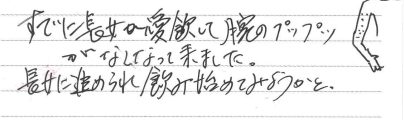 すでに長女が愛飲して腕のプツプツ
がなくなって来ました。
長女に進められ飲み始めてみようかと、